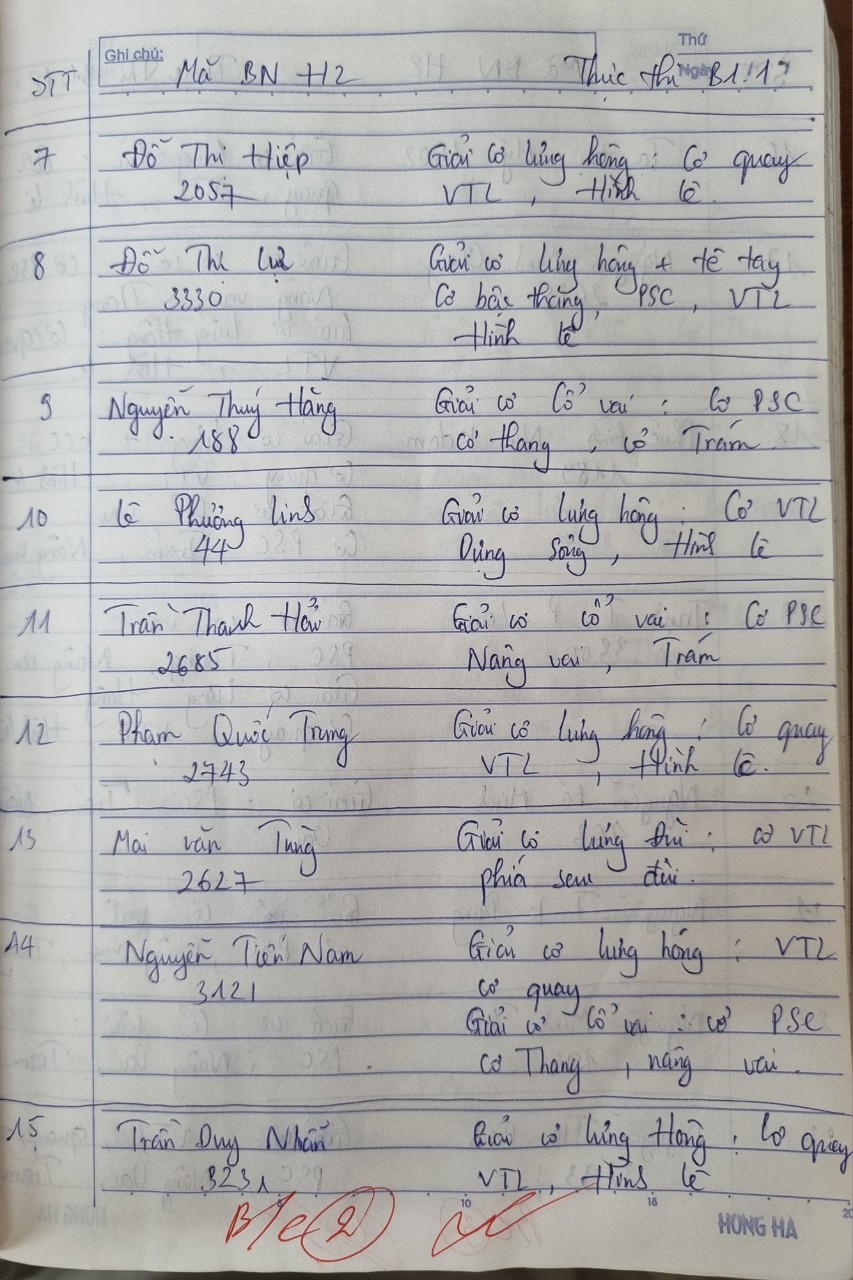 Ghi chú:
Thứ
Ngày
STT Mã BN H2 Thực thu B1.1
7 Đỗ Thị Hiệp Giải cơ lưng hông : Cơ quay
2057 VTL , Hình lê.
8 Đỗ Thị Lự Giải cơ lưng hông + tê tay
3330 Cơ bậc thang, PSC , VTL
Hình lê
9 Nguyễn Thuý Hằng Giải cơ Cổ vai : Cơ PSC
188 cơ thang , cơ Trám
10 Lê Phương Linh Giải cơ lưng hông : Cơ VTL
44 Dựng sống , Hình lê
11 Trần Thanh Hải Giải cơ cổ vai : Cơ PSC
2685 Nâng vai , Trám
12 Phạm Quốc Trung Giải cơ lưng hông : Cơ quay
2743 VTL , Hình lê.
13 Mai văn Tùng Giải cơ lưng đùi : cơ VTL
2627 phía sau đùi.
14 Nguyễn Tiến Nam Giải cơ lưng hông : VTL
3121 cơ quay
Giải cơ Cổ vai : cơ PSC
cơ Thang , nâng vai .
15 Trần Duy Nhân Giải cơ lưng Hông : Cơ quay
3231 VTL , Hình lê
10 15 20
B/c 2
HONG HA